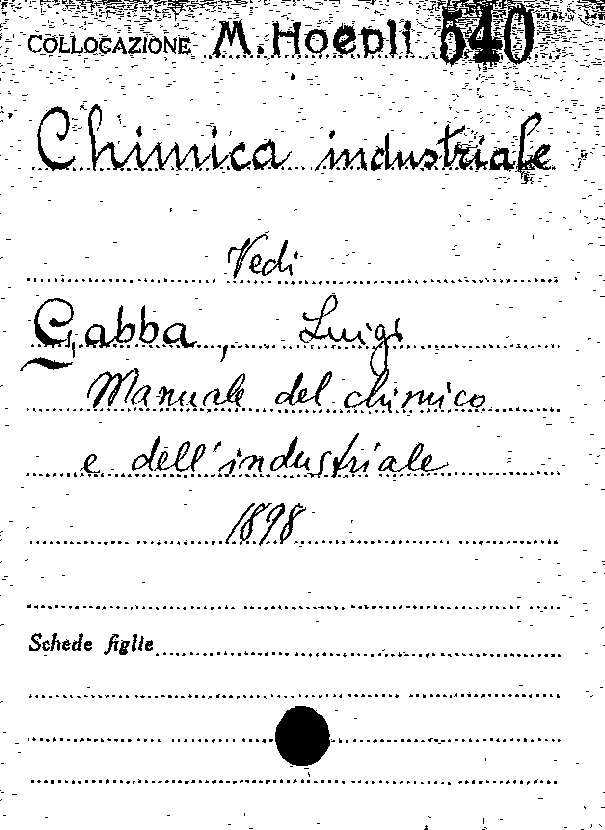 COLLOCAZIONE M. Hoepli 540
Chimica industriale
Vedi
Gabba, Luigi
Manuale del chimico
e dell'industriale
1898
Schede figlie